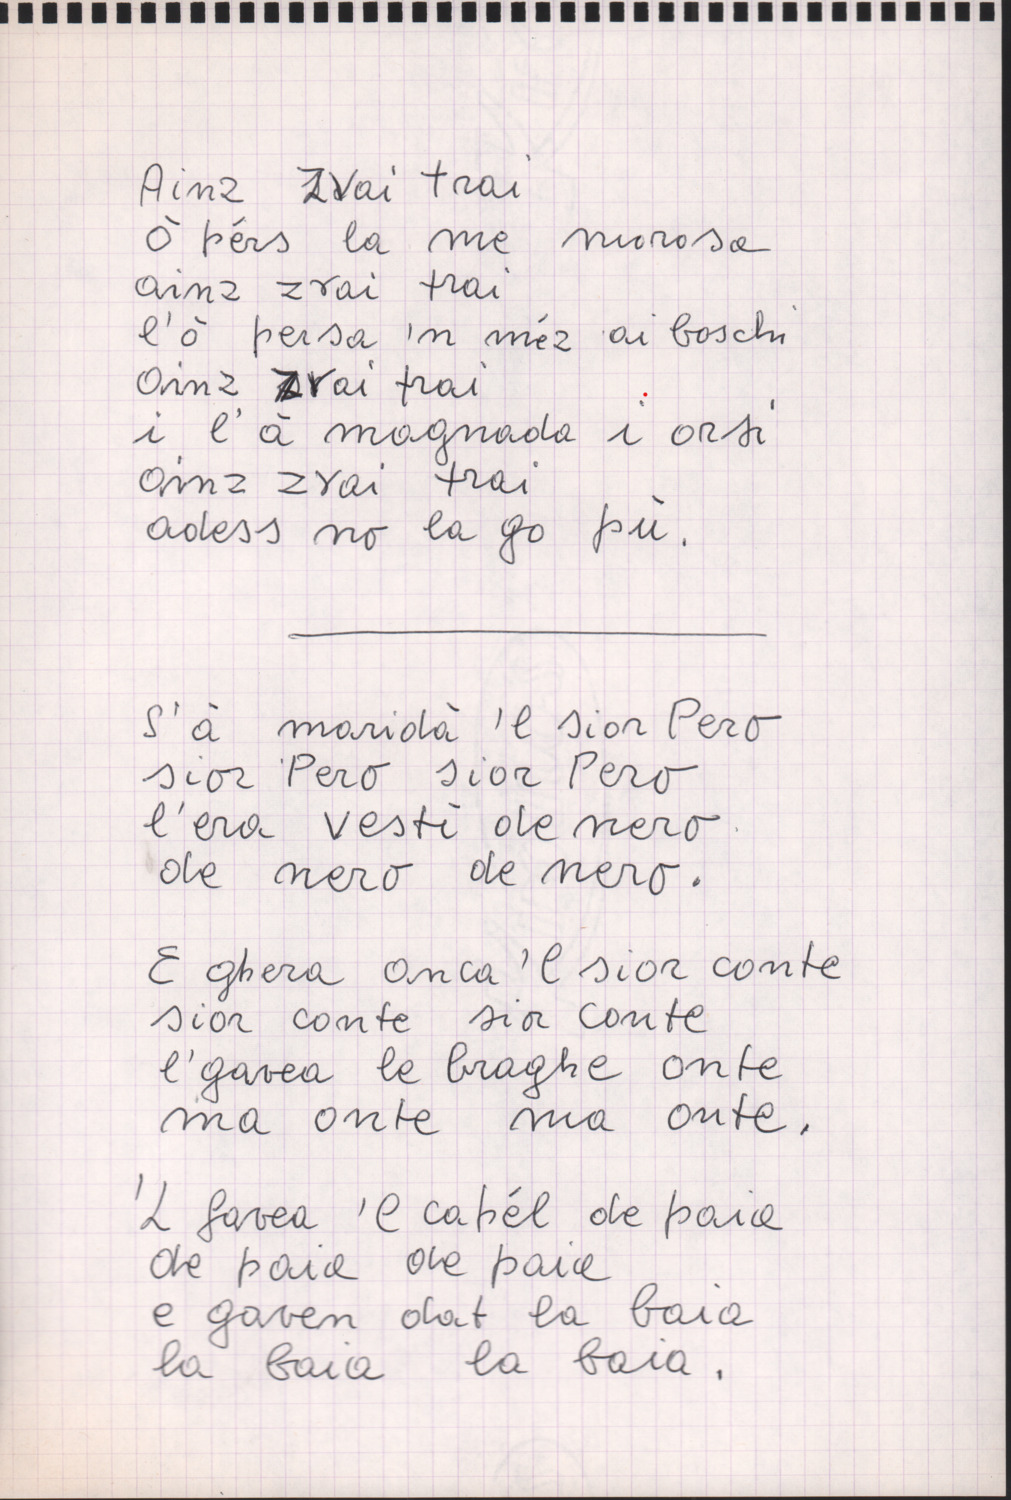 Ainz zvai trai
Ò pérs la me morosa
ainz zvai trai
l'ò persa 'n méz ai boschi
ainz zvai trai
i l'à magnada i orsi
ainz zvai trai
adess no la go pù.
S'à maridà 'l sior Pero
sior Pero sior Pero
l'era vestì de nero
de nero de nero.
E ghera anca 'l sior conte
sior conte sior conte
l'gavea le braghe onte
ma onte ma onte.
'L gavea 'l capél de paia
de paia de paia
e gaven dat la baia
la baia la baia.